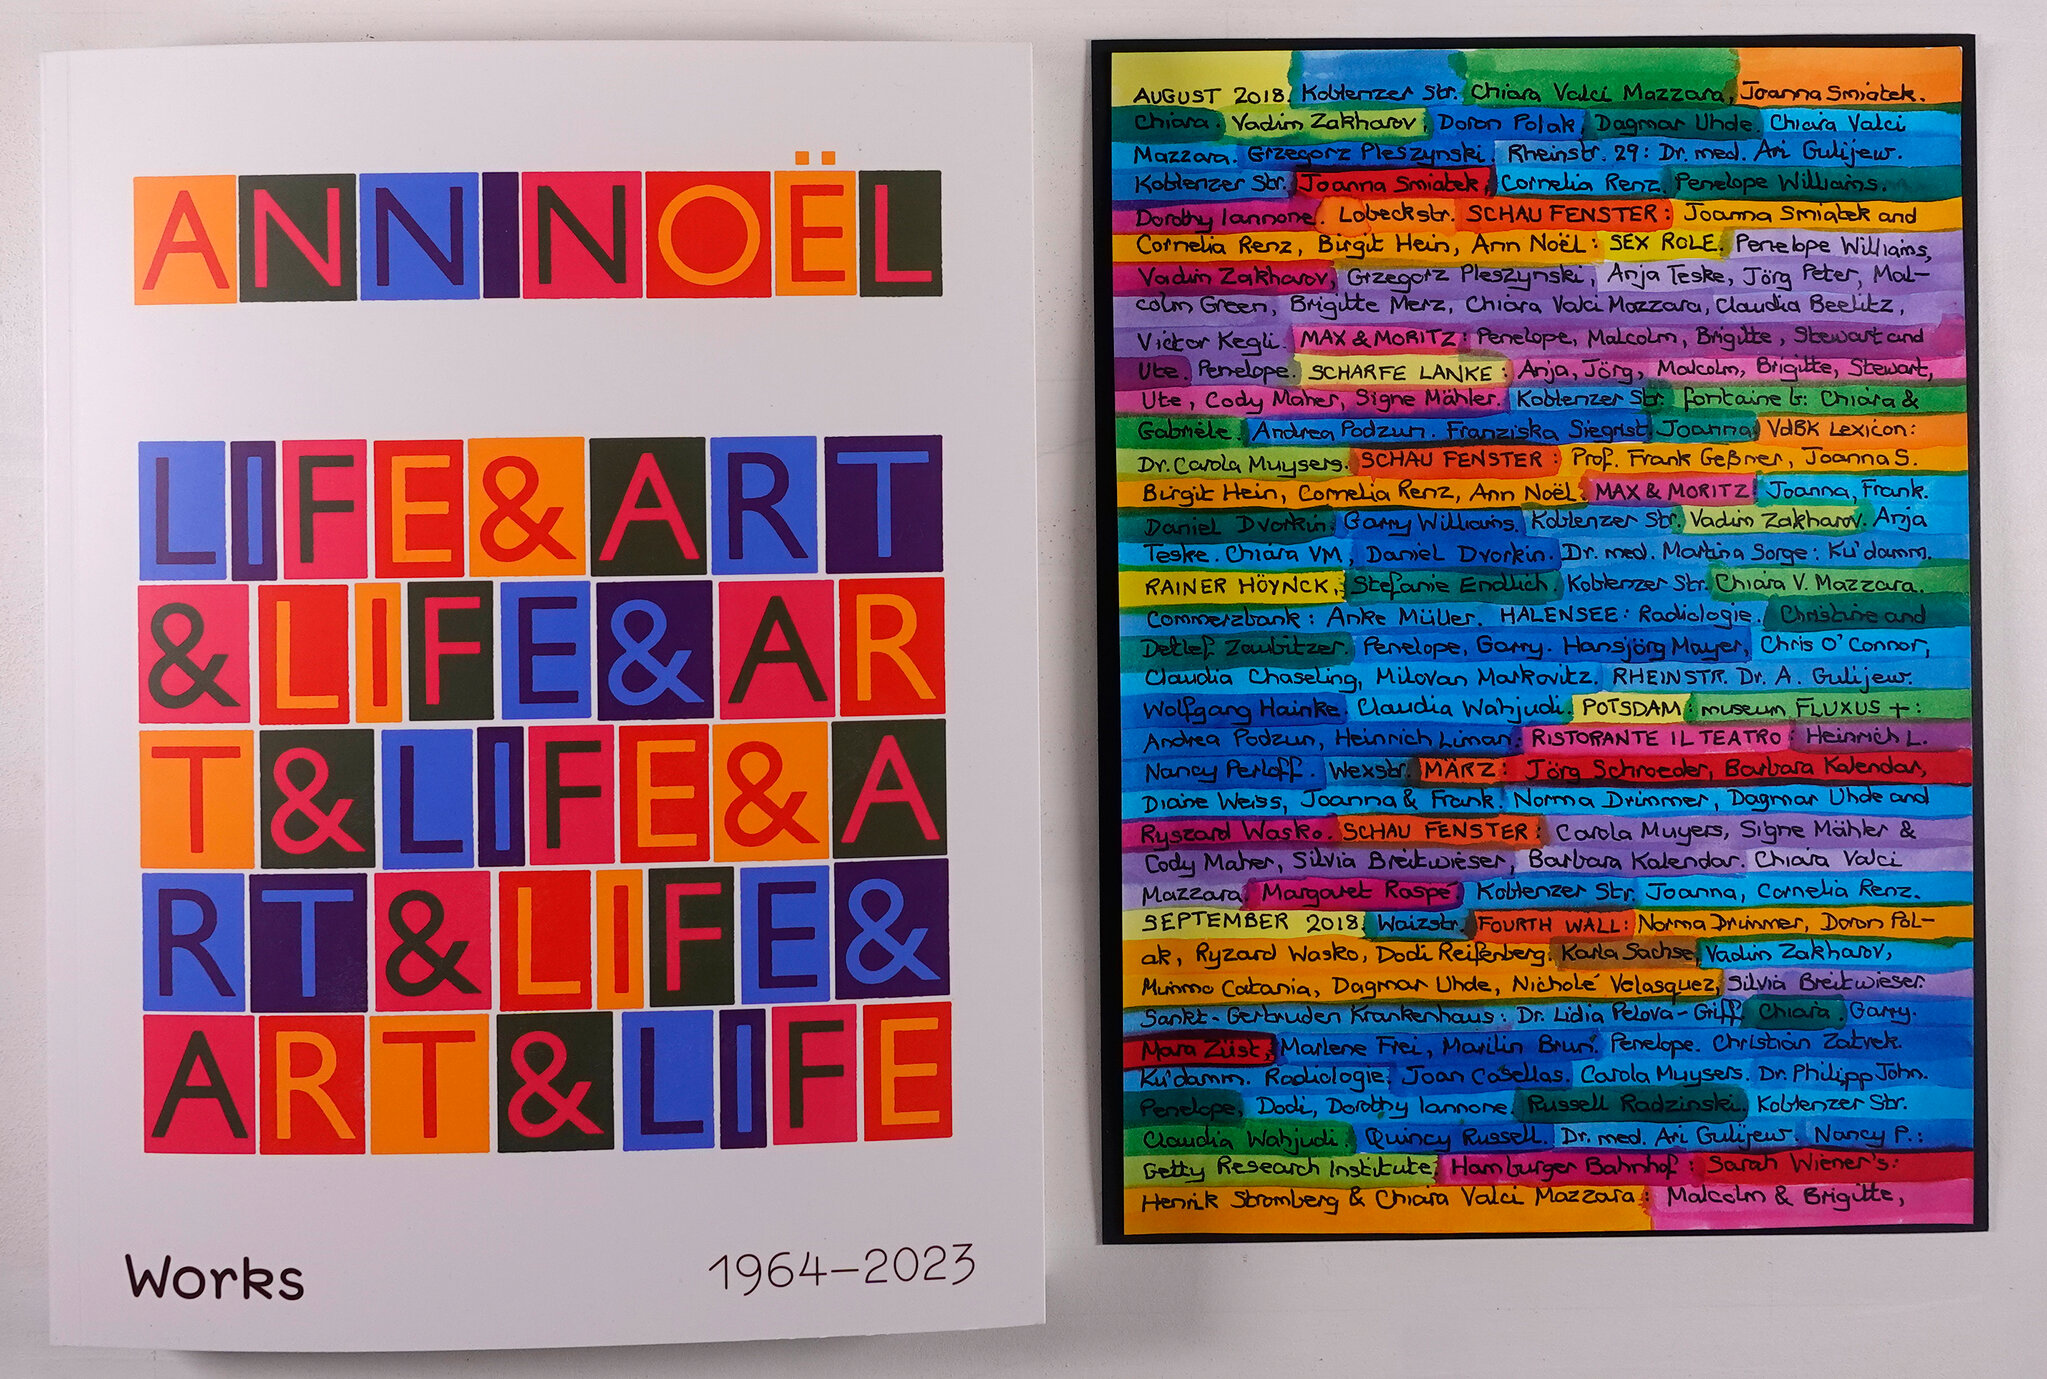 ANN NOËL
LIFE&ART
&LIFE&AR
T&LIFE&A
RT&LIFE&
ART&LIFE
Works
1964–2023
AUGUST 2018. Koblenzer Str. Chiara Valci Mazzara, Joanna Smiatek.
Chiara. Vadim Zakharov, Doron Polak, Dagmar Uhde. Chiara Valci
Mazzara. Grzegorz Pleszynski. Rheinstr. 29: Dr. med. Ari Gulijew.
Koblenzer Str. Joanna Smiatek, Cornelia Renz, Penelope Williams.
Dorothy Iannone. Lobeckstr. SCHAU FENSTER: Joanna Smiatek and
Cornelia Renz, Birgit Hein, Ann Noël: SEX ROLE. Penelope Williams,
Vadim Zakharov, Grzegorz Pleszynski, Anja Teske, Jörg Peter, Mal-
colm Green, Brigitte Merz, Chiara Valci Mazzara, Claudia Beelitz,
Victor Kegli. MAX & MORITZ: Penelope, Malcolm, Brigitte, Stewart and
Ute. Penelope. SCHARFE LANKE: Anja, Jörg, Malcolm, Brigitte, Stewart,
Ute, Cody Maher, Signe Mähler. Koblenzer Str. fontaine b: Chiara &
Gabriele. Andrea Podzun. Franziska Siegrist. Joanna. VdBK Lexicon:
Dr. Carola Muysers. SCHAU FENSTER: Prof. Frank Geßner, Joanna S.
Birgit Hein, Cornelia Renz, Ann Noël. MAX & MORITZ: Joanna, Frank.
Daniel Dvorkin. Garry Williams. Koblenzer Str. Vadim Zakharov. Anja
Teske. Chiara VM, Daniel Dvorkin. Dr. med. Martina Sorge: Ku'damm.
RAINER HÖYNCK, Stefanie Endlich. Koblenzer Str. Chiara V. Mazzara.
Commerzbank: Anke Müller. HALENSEE: Radiologie. Christine and
Detlef Zaubitzer. Penelope, Garry. Hansjörg Mayer, Chris O'Connor,
Claudia Chaseling, Milovan Markovitz. RHEINSTR. Dr. A. Gulijew.
Wolfgang Hainke. Claudia Wahjudi. POTSDAM: museum FLUXUS +:
Andrea Podzun, Heinrich Liman. RISTORANTE IL TEATRO: Heinrich L.
Nancy Perloff. Wexstr. MÄRZ: Jörg Schroeder, Barbara Kalendar,
Diane Weiss, Joanna & Frank. Norma Drimmer, Dagmar Uhde and
Ryszard Wasko. SCHAU FENSTER: Carola Muyers, Signe Mähler &
Cody Maher, Silvia Breitwieser, Barbara Kalendar. Chiara Valci
Mazzara, Margaret Raspé. Koblenzer Str. Joanna, Cornelia Renz.
SEPTEMBER 2018. Waizstr. FOURTH WALL: Norma Drimmer, Doron Pol-
ak, Ryzard Wasko, Dodi Reifenberg. Karla Sachse, Vadim Zakharov,
Mimmo Catania, Dagmar Uhde, Nicholé Velasquez, Silvia Breitwieser.
Sankt-Gertruden Krankenhaus: Dr. Lidia Pelova-Griff. Chiara. Garry.
Mara Züst, Marlene Frei, Marilin Brun. Penelope. Christian Zatrek.
Ku'damm. Radiologie. Joan Casellas. Carola Muysers. Dr. Philipp John.
Penelope, Dodi, Dorothy Iannone. Russell Radzinski. Koblenzer Str.
Claudia Wahjudi. Quincy Russell. Dr. med. Ari Gulijew. Nancy P.:
Getty Research Institute, Hamburger Bahnhof: Sarah Wiener's:
Henrik Stromberg & Chiara Valci Mazzara: Malcolm & Brigitte,